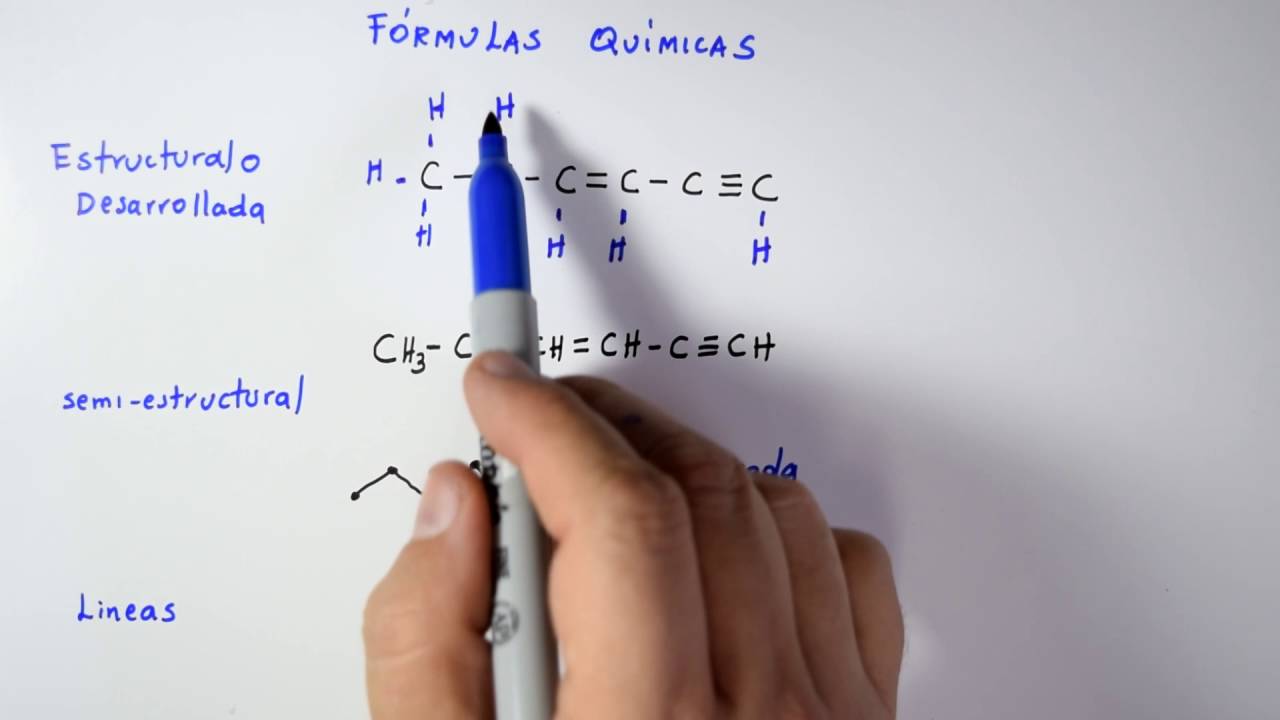 FÓRMULAS QUÍMICAS
H H
Estructural o
Desarrollada
H - C - - C = C - C ≡ C
H H H H
CH₃- C H = CH - C ≡ CH
semi-estructural
Lineas